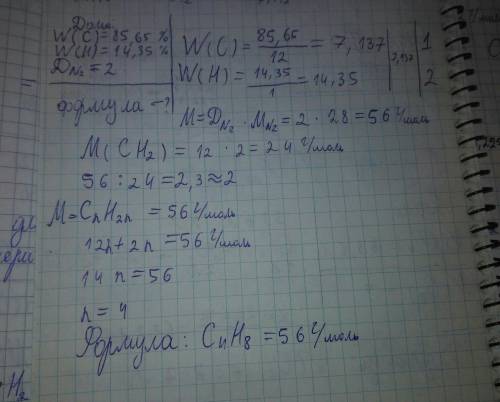 Дано:
W(C) = 85,65 %
W(H) = 14,35 %
D N₂ = 2
формула – ?
W(C) = 85,65 / 12 = 7,137 | 7,137 | 1
W(H) = 14,35 / 1 = 14,35 | 2
M = D N₂ · M N₂ = 2 · 28 = 56 г/моль
M(CH₂) = 12 · 2 = 24 г/моль
56 : 24 = 2,3 ≈ 2
M = CnH2n = 56 г/моль
12n + 2n = 56 г/моль
14 n = 56
n = 4
Формула: C₄H₈ = 56 г/моль
H₂